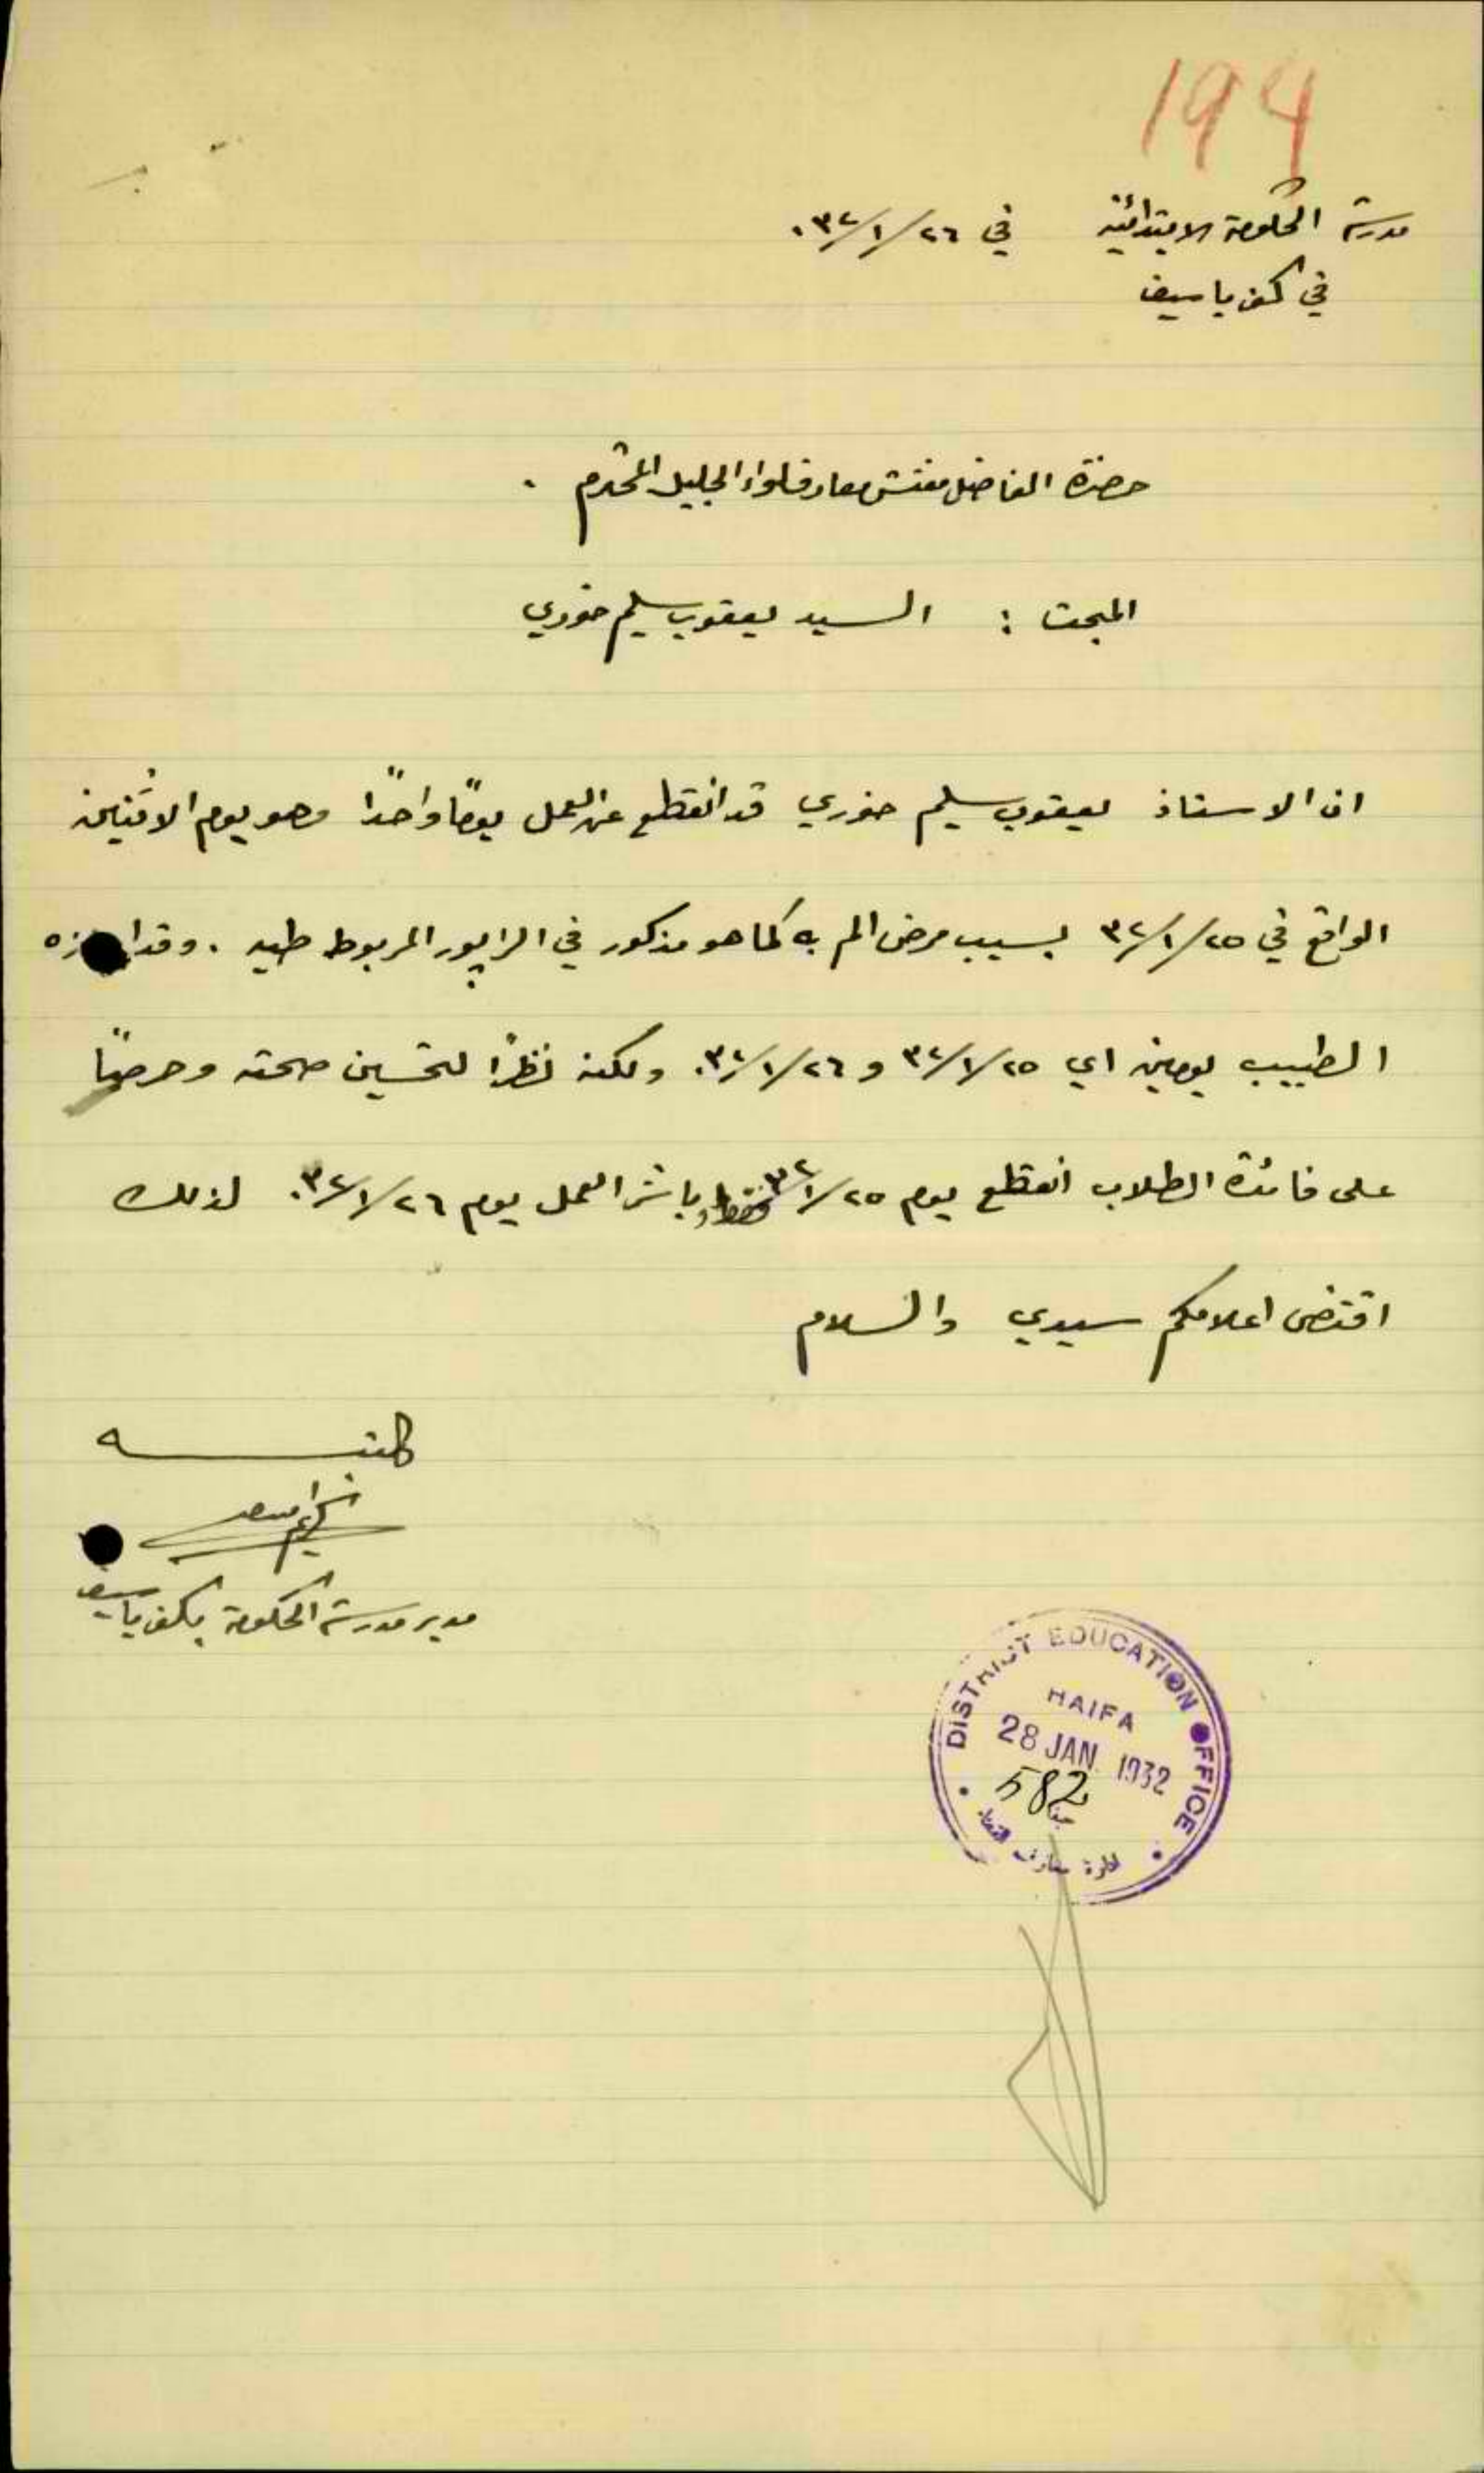 194
مدرسة الحكومة الابتدائية في ٢٦/١/٣٢.
في كفر ياسيف
حضرة الفاضل مفتش معارف لواء الجليل المحترم .
المبحث : السيد يعقوب سليم خوري
ان الاستاذ يعقوب سليم خوري قد انقطع عن العمل يومًا واحدًا وهو يوم الاثنين
الواقع في ٢٥/١/٣٢ بسبب مرض الم به كما هو مذكور في الراپور المربوط طيه . وقد
الطبيب يومين اي ٢٥/١/٣٢ و ٢٦/١/٣٢. ولكنه نظرًا لتحسين صحته وحرصًا
على فائدة الطلاب انقطع يوم ٢٥/١/٣٢ فقط وباشر العمل يوم ٢٦/١/٣٢. لذلك
اقتضى اعلامكم سيدي والسلام
كاتبه
مدير مدرسة الحكومة بكفر ياسيف
DISTRICT EDUCATION OFFICE
HAIFA
28 JAN 1932
582
حيفا
ادارة معارف